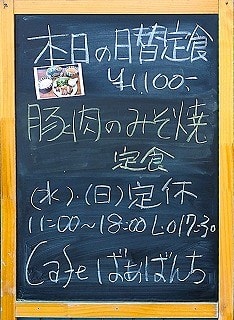 本日の日替定食
¥1,100-
豚肉のみそ焼
定食
(水)・(日)定休
11:00~18:00 L.O17:30
Cafe ばぁばんち